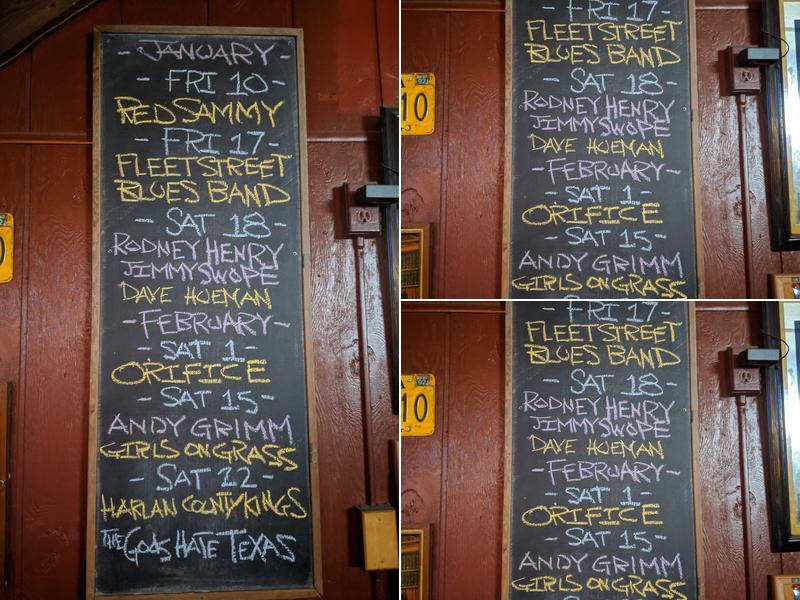 - JANUARY -
- FRI 10 -
RED SAMMY
- FRI 17 -
FLEETSTREET
BLUES BAND
- SAT 18 -
RODNEY HENRY
JIMMY SWOPE
DAVE HUEMAN
- FEBRUARY -
- SAT 1 -
ORIFICE
- SAT 15 -
ANDY GRIMM
GIRLS ON GRASS
- SAT 22 -
HARLAN COUNTY KINGS
THE GODS HATE TEXAS
0
- FRI 17 -
FLEETSTREET
BLUES BAND
- SAT 18 -
RODNEY HENRY
JIMMY SWOPE
DAVE HUEMAN
- FEBRUARY -
- SAT 1 -
ORIFICE
- SAT 15 -
ANDY GRIMM
GIRLS ON GRASS
10
- FRI 17 -
FLEETSTREET
BLUES BAND
- SAT 18 -
RODNEY HENRY
JIMMY SWOPE
DAVE HUEMAN
- FEBRUARY -
- SAT 1 -
ORIFICE
- SAT 15 -
ANDY GRIMM
GIRLS ON GRASS
10